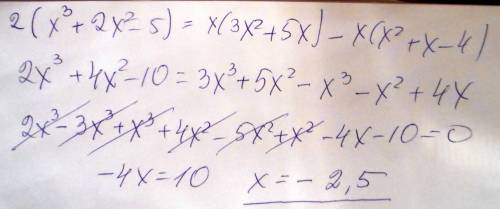 2(x³+2x²-5)=x(3x²+5x)-x(x²+x-4)
2x³+4x²-10=3x³+5x²-x³-x²+4x
2x³-3x³+x³+4x²-5x²+x²-4x-10=0
-4x=10 x=-2,5